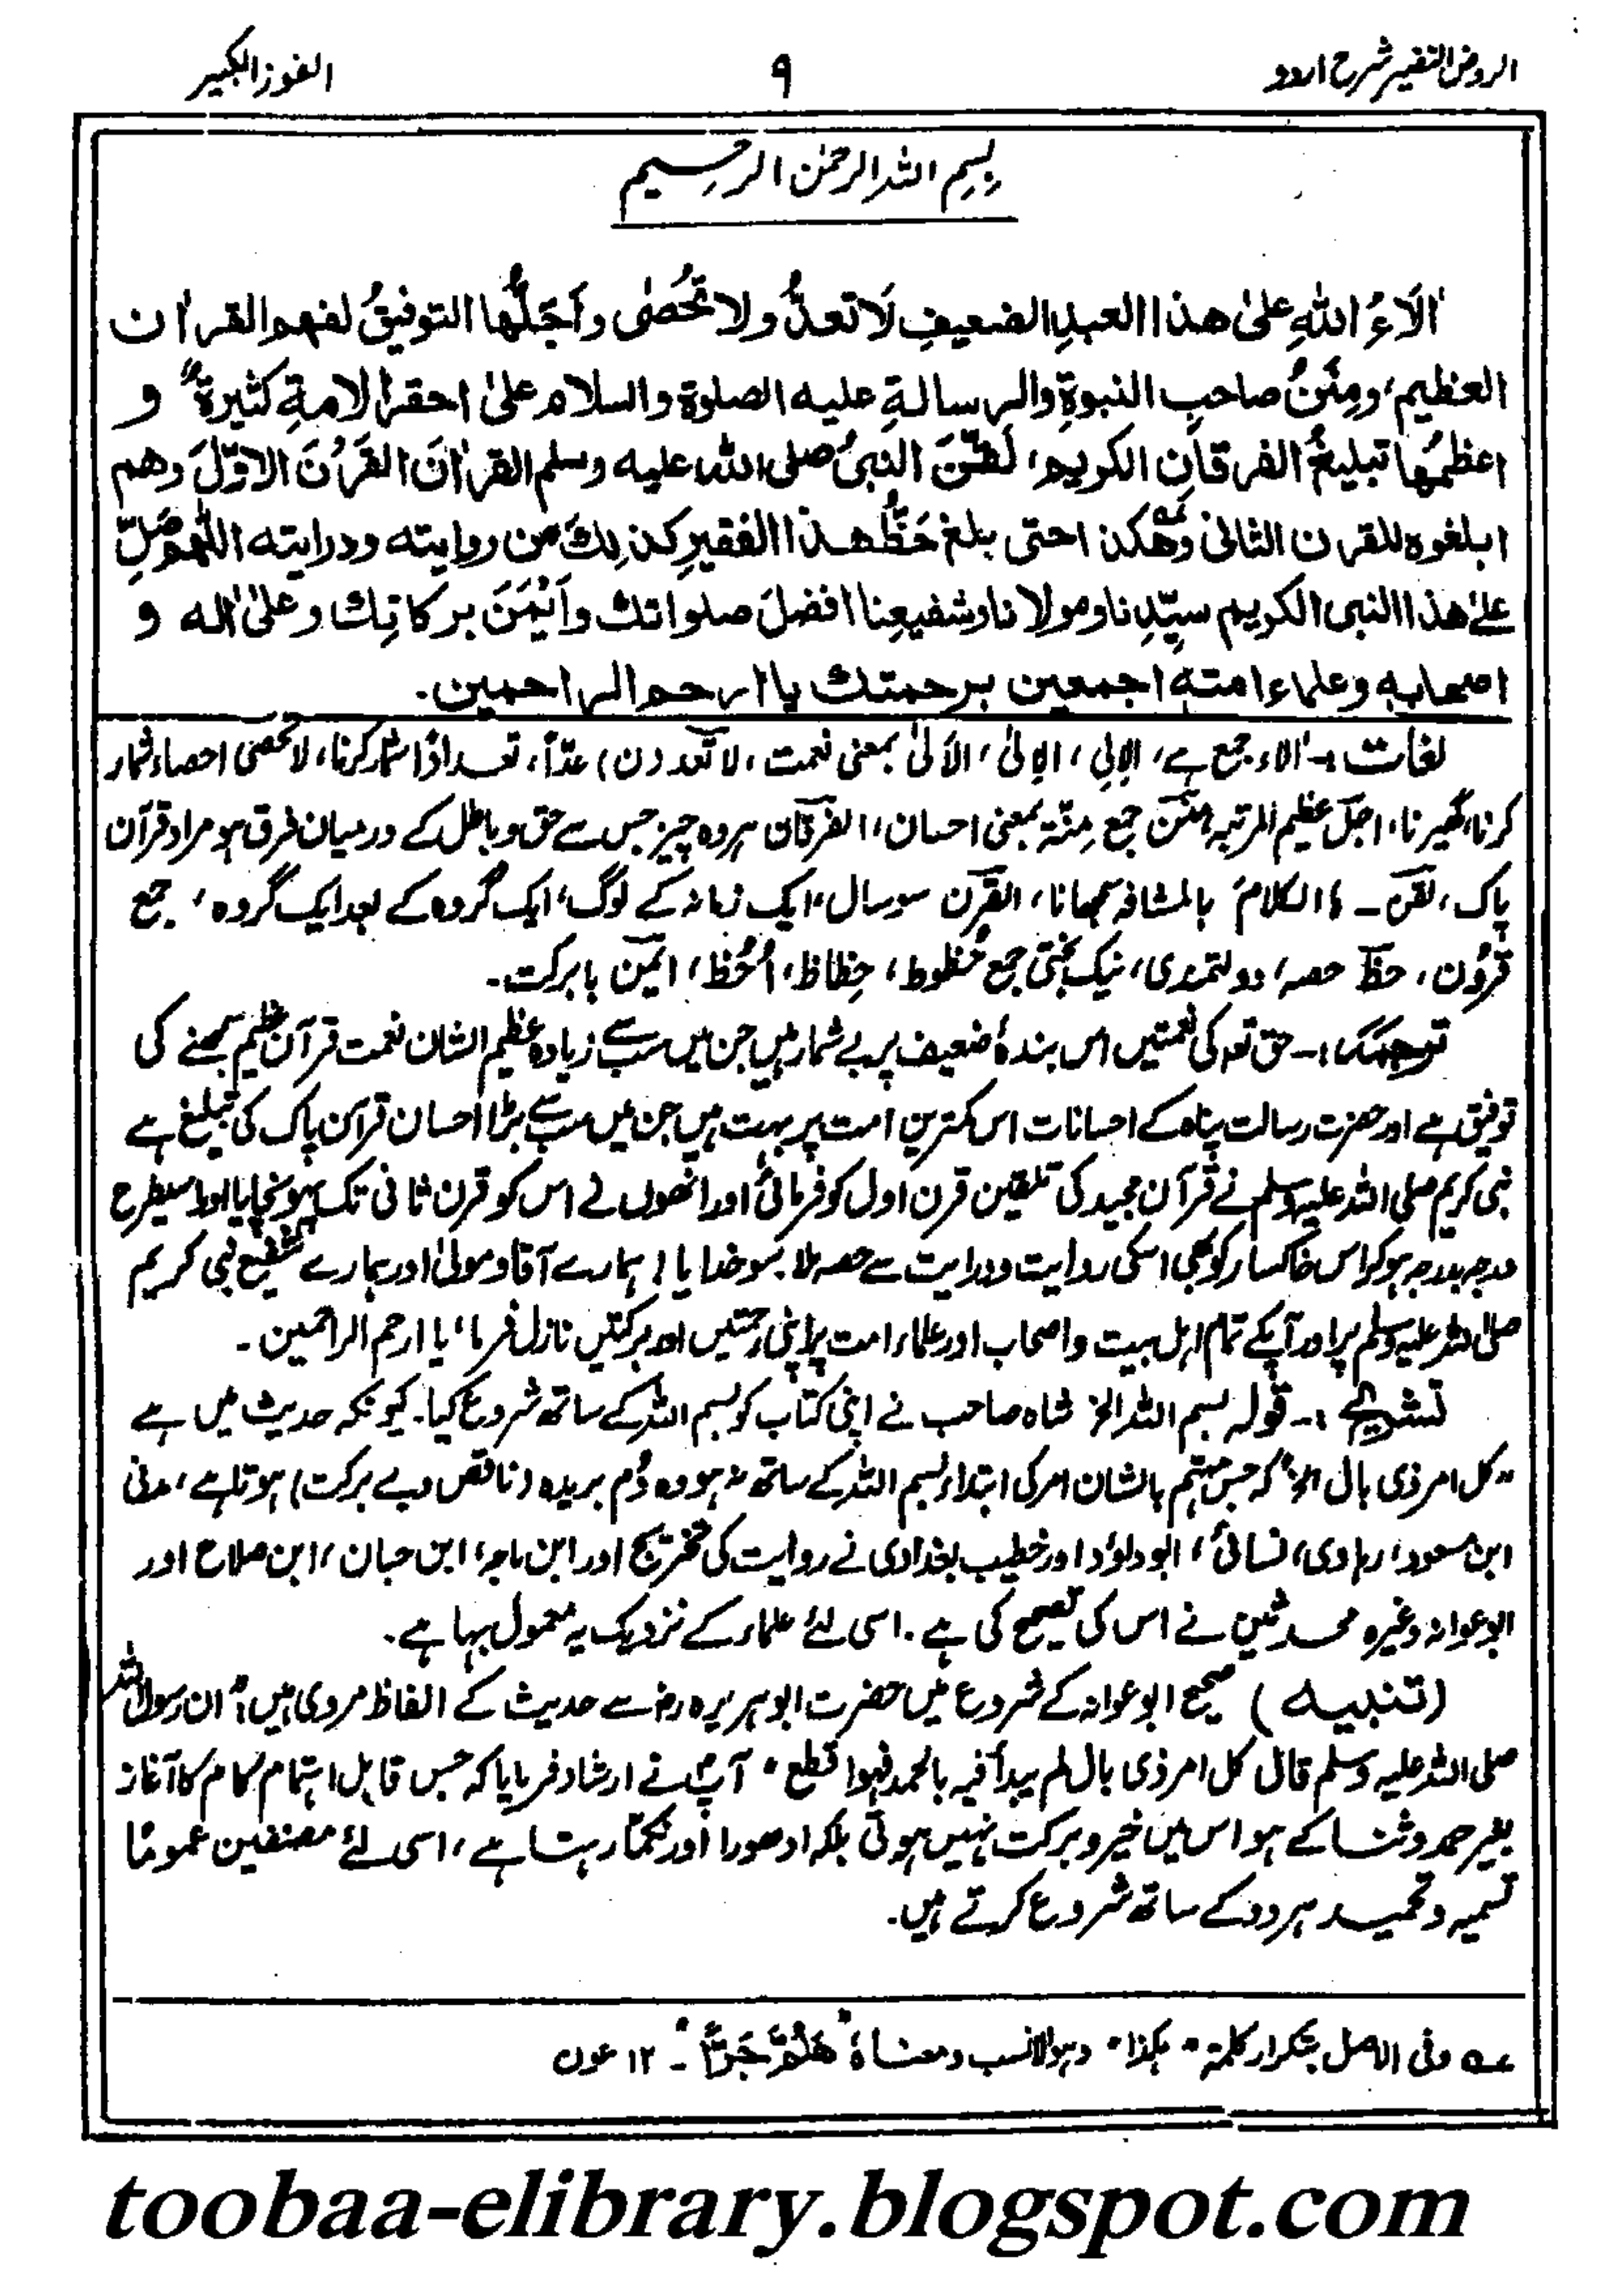 الروض النضیر شرح اردو
۹
الفوز الکبیر
بِسْمِ اللہ الرحمٰن الرحِیم
اٰلَاءُ اللّٰهِ علیٰ هذا العبدِ الضعیفِ لَا تعدُّ ولا تُحْصٰی واَجَلُّها التوفیقُ لفهم القراٰن
العظیم، ومِنَنُ صاحبِ النبوةِ والرسالةِ علیه الصلوة والسلام علیٰ احقرِ الامةِ کثیرةٌ و
اعظمُها تبلیغُ الفرقانِ الکریم، لَقَّنَ النبیُّ صلی الله علیه وسلم القراٰنَ القَرْنَ الاوّلَ وهم
ابلغوه للقرن الثانی وهکذا حتی بلغ حَظُّ هذا الفقیرِ کذٰلِكَ من روایته ودرایته اللّٰهم صَلِّ
علیٰ هذا النبی الکریم سیّدِنا ومولانا وشفیعِنا افضلَ صلواتك واَیْمَنَ برکاتِك وعلیٰ اٰله و
اصحابه وعلماء امته اجمعین برحمتك یا ارحم الراحمین.
لغات :۔ اٰلاء جمع ہے، الاِلی، الاِلیٰ، الاَلیٰ بمعنی نعمت، لا تعد (ن) عدّاً، تعداداً شمار کرنا، لا تحصٰی احصاء شمار
کرنا، گھیرنا، اجلّ عظیم المرتبہ مِنَن جمع مِنّۃ بمعنی احسان، الفرقان ہر وہ چیز جس سے حق و باطل کے درمیان فرق ہو مراد قرآن
پاک، لقن ۔ ہ الکلامَ بالمشافہ سمجھانا، القرن سو سال، ایک زمانہ کے لوگ، ایک گروہ کے بعد ایک گروہ، جمع
قرُون، حظّ حصہ، دولتمندی، نیک بختی جمع حُظوط، حِظاظ، اَحُظّ، ایمن بابرکت۔
ترجمہ :۔ حق تعہ کی نعمتیں اس بندۂ ضعیف پر بے شمار ہیں جن میں سب سے زیادہ عظیم الشان نعمت قرآن عظیم سمجھنے کی
توفیق ہے اور حضرت رسالت پناہ کے احسانات اس کمترین امت پر بہت ہیں جن میں سب سے بڑا احسان قرآن پاک کی تبلیغ ہے
نبی کریم صلی اللہ علیہ وسلم نے قرآن مجید کی تلقین قرن اول کو فرمائی اور انھوں نے اس کو قرن ثانی تک پہونچایا اور اسیطرح
درجہ بدرجہ ہو کر اس خاکسار کو بھی اسکی روایت و درایت سے حصہ ملا۔ سو خدایا! ہمارے آقا و مولیٰ اور ہمارے شفیع نبی کریم
صلی اللہ علیہ وسلم پر اور آپکے تمام اہل بیت و اصحاب اور علماء امت پر اپنی رحمتیں اور برکتیں نازل فرما، یا ارحم الراحمین ۔
تشریح :۔ قولہ بسم اللہ الخ شاہ صاحب نے اپنی کتاب کو بسم اللہ کے ساتھ شروع کیا۔ کیونکہ حدیث میں ہے
"کل امر ذی بال الخ" کہ جس مہتم بالشان امر کی ابتداء بسم اللہ کے ساتھ نہ ہو وہ دُم بریدہ (ناقص و بے برکت) ہوتا ہے، مدنی
ابن مسعود، رہاوی، نسائی، ابوداؤد اور خطیب بغدادی نے روایت کی تخریج اور ابن ماجہ، ابن حبان، ابن صلاح اور
ابوعوانہ وغیرہ محدثین نے اس کی تصحیح کی ہے۔ اسی لئے علماء کے نزدیک یہ معمول بہا ہے۔
(تنبیہ) صحیح ابوعوانہ کے شروع میں حضرت ابوہریرہ رض سے حدیث کے الفاظ مروی ہیں: "ان رسول اللہ
صلی اللہ علیہ وسلم قال کل امر ذی بال لم یبدأ فیہ بالحمد فہو اقطع" آپؐ نے ارشاد فرمایا کہ جس قابل اہتمام کام کا آغاز
بغیر حمد و ثنا کے ہو اس میں خیر و برکت نہیں ہوتی بلکہ ادھورا اور نکمّا رہتا ہے، اسی لئے مصنفین عموماً
تسمیہ و تحمید ہر دو کے ساتھ شروع کرتے ہیں۔
عہ وفی الاصل بتکرار کلمۃ "ہکذا" وہو الانسب ومعناہ "هَلُمَّ جَرّاً" ۔ ۱۲ عون
toobaa-elibrary.blogspot.com